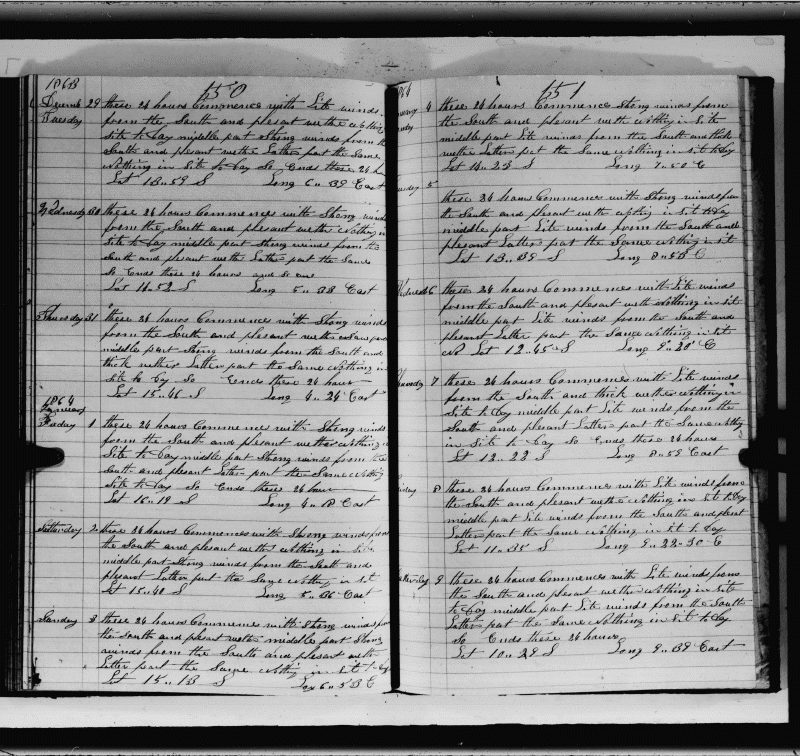 1863
150
Decemb 29 these 24 hours Commence with Lite winds
Tuesday from the South and plesant wethe Nothing
Site to Day middle part Strong winds from the
South and plesant wethe Latter part the Same
Nothing in Site to Day So Ends these 24 h
Lat 13.. 59 S Long 6.. 39 East
Wednesday 30 these 24 hours Commences with Strong winds
from the South and plesant wether Nothing in
Site to Day middle part Strong winds from the
South and plesant wether Latter part the Same
So Ends these 24 hours and So one
Lat 14.. 52 S Long 5.. 33 East
Thursday 31 these 24 hours Commences with Strong winds
from the South and plesant wether
middle part Strong winds from the South and
thick wether Latter part the Same Nothing in
Site to Day So Ends these 24 hours
Lat 15.. 46 S Long 4.. 24 East
1864
January
Friday 1 these 24 hours Commences with Strong winds
from the South and plesant wether Nothing in
Site to Day middle part Strong winds from the
South and plesant Latter part the Same Nothing
Site to Day So Ends these 24 hours
Lat 16.. 19 S Long 4.. 18 East
Satturday 2 these 24 hours Commences with Strong winds from
the South and plesant wether Nothing in Site
middle part Strong winds from the South and
plesant Latter part the Same Nothing in Sit
Lat 15.. 40 S Long 5.. 06 East
Sunday 3 these 24 hours Commences with Strong winds from
the South and plesant wethe middle part Strong
winds from the South and plesant wethe
Latter part the Same Nothing in Sit to Day
Lat 15.. 13 S Lon 6.. 53 E
151
4 these 24 hours Commence Strong winds from
the South and plesant wethe Nothing in Site
middle part Lite winds from the South and thick
wethe Latter part the Same Nothing in Site to Day
Lat 14.. 23 S Long 7.. 50 E
5
these 24 hours Commences with Strong winds from
the South and plesant wethe Nothing in Sit to Day
middle part Lite winds from the South and
plesant Latter part the Same Nothing in Sit
Lat 13.. 39 S Long 8.. 53 E
6 these 24 hours Commences with Lite winds
from the South and plesant wethe Nothing in Sit
middle part Lite winds from the South and
plesant Latter part the Same Nothing in Sit
Lat 12.. 45 S Long 9.. 20 E
7 these 24 hours Commences with Lite winds
from the South and thick wethe Nothing in
Site to Day middle part Lite winds from the
South and plesant Latter part the Same Nothing
in Site to Day So Ends these 24 hours
Lat 12.. 22 S Long 8.. 59 East
8 these 24 hours Commences with Lite winds from
the South and plesant wethe Nothing in Sit to Day
middle part Lite winds from the South and
Latter part the Same Nothing in Sit to Day
Lat 11.. 35 S Long 9.. 22.. 30 E
9 these 24 hours Commences with Lite winds from
the South and plesant wethe Nothing in Site
to Day middle part Lite winds from the South
Latter part the Same Nothing in Sit to Day
So Ends these 24 hours
Lat 10.. 29 S Long 9.. 39 East